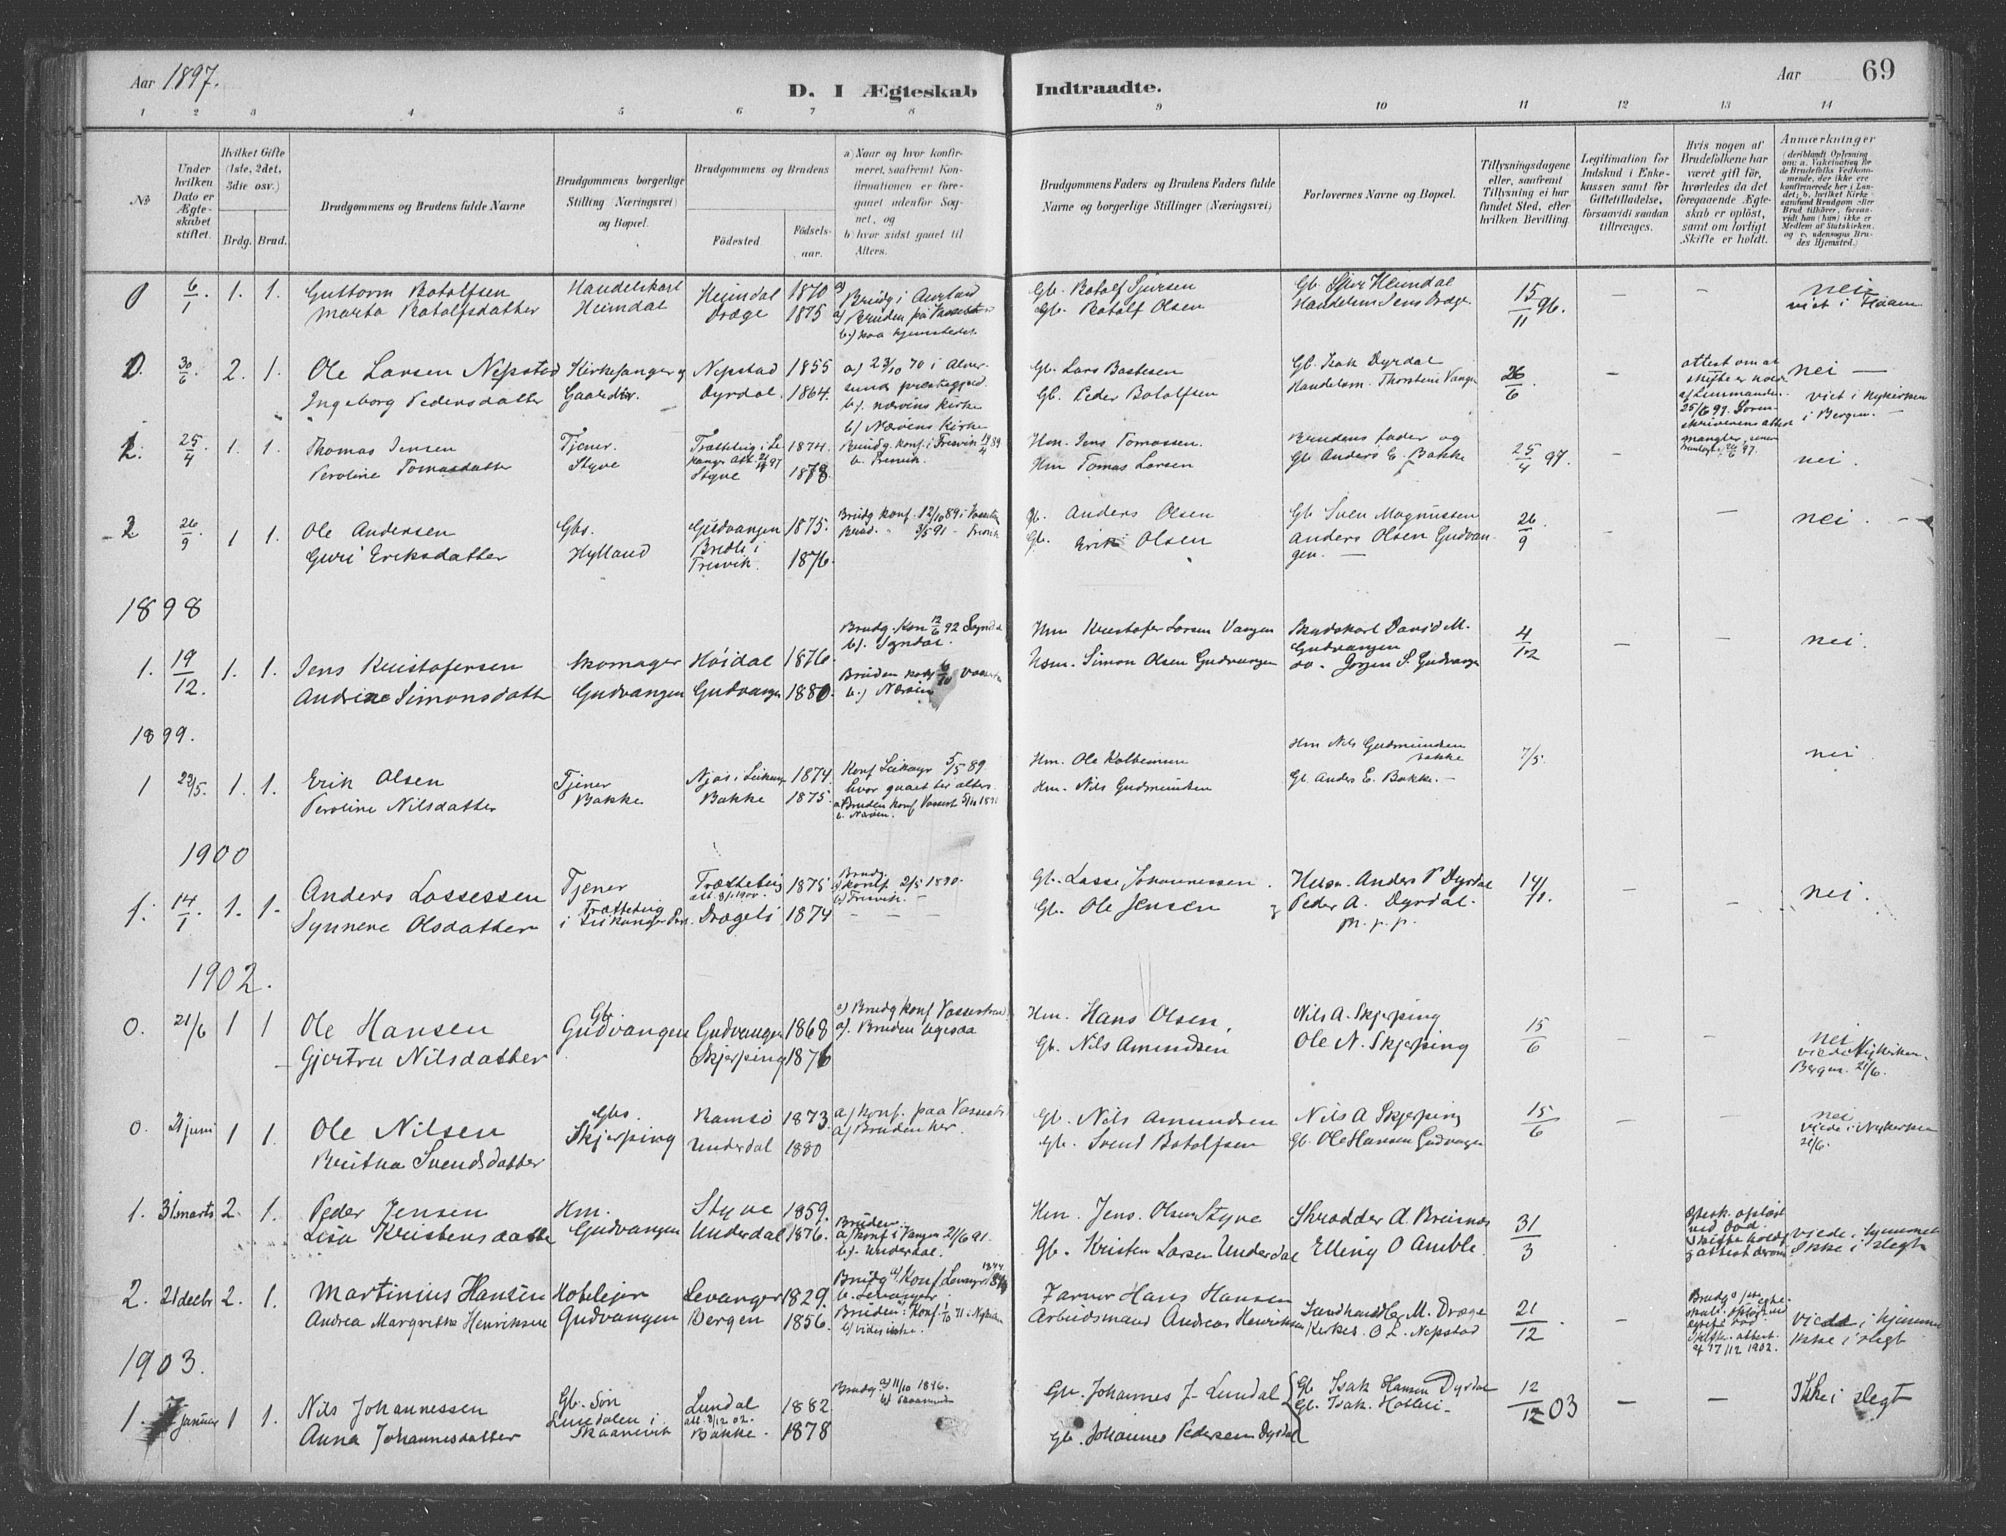 Aar 1897.
D. I Ægteskab Indtraadte.
Aar 69
1 2 3 4 5 6 7 8 9 10 11 12 13 14
No
Under hvilken Dato er Ægteskabet stiftet.
Hvilket Gifte (1ste, 2det, 3die osv.)
Brdg. Brud.
Brudgommens og Brudens fulde Navne
Brudgommens borgerlige Stilling (Næringsvei) og Bopæl.
Brudgommens og Brudens
Födested
Födselsaar.
a) Naar og hvor konfirmeret, saafremt Konfirmationen er foregaaet udenfor Sognet, og
b) hvor sidst gaaet til Alters.
Brudgommens Faders og Brudens Faders fulde Navne og borgerlige Stillinger (Næringsvei)
Forlovernes Navne og Bopæl.
Tillysningsdagene eller, saafremt Tillysning ei har fundet Sted, efter hvilken Bevilling.
Legitimation for Indskud i Enkekassen samt for Giftetilladelse, forsaavidt saadan tiltrænges.
Hvis nogen af Brudefolkene har været gift før, hvorledes da det foregaaende Ægteskab er opløst, samt om lovligt Skifte er holdt.
Anmærkninger (deriblandt Oplysning om: a. Vakcination for de Brudefolks Vedkommende, der ikke ere konfirmerede her i Landet, b. hvilket Kirkesamfund Brudgom eller Brud tilhører, forsaavidt han (hun) ikke er Medlem af Statskirken, og c. udensogns Brudes Hjemsted.)
0 6/1. 1. 1. Guttorm Botolfsen Handelskarl Heimdal 1870 Brudg i Aurland Gb. Botolf Sjursen Gb. Sjur Heimdal 15/11 96. nei
Marta Botolfsdatter Heimdal Dræge 1875 Bruden på Vasset Gb. Botolf Olsen Handelsm Jens Dræge viet i Flaam
b.) paa hjemstedet
0. 30/6. 2. 1. Ole Larsen Nepstad Kirkesanger og Nepstad 1855 a) 23/10 70 i Alver Gb. Lars Bastesen Gb. Isak Dyrdal 26/6 attest om at nei
Ingeborg Pedersdatter Gaardbr. Dyrdal 1864. sund prestegjed. Gb. Peder Botolfsen Handelsm. Thorstein Vangen viet i Nykirken
b.) nærøens kirke i Bergen.
b) Nærøens Kirke
25/6 97.
1. 25/4 1. 1. Thomas Jensen Tjener. Trætteteig i Lekanger 1874. Brudg. konf. i Fresvik 14/4 89 Hm. Jens Tomassen. Brudens fader og 25/4 97. nei.
Peroline Tomasdatter Styve Styve 1878. b. Fresvik. Hm Tomas Larsen Gb Anders E. Bakke
2 26/9. 1 1. Ole Andersen Gbs. Gudvangen 1875. Brudg konf. 12/10 89 i Gb. Anders Olsen Gb Sven Magnussen 26/9 nei.
Guri Eriksdatter Hylland Bredli i Fresvik. 1876. Brud. 3/5 91 - Fresvik Gb. Erik Olsen Anders Olsen Gudvangen.
1898
1. 19/12. 1. 1. Jens Kristofersen Skomager Höidal 1876. Brudg. kon 12/6 92 b.) Hm Kristofer Larsen Vangen Skydskarl David M. Gudvangen 4/12 nei.
Andrine Simonsdatt Gudvangen Gudvangen 1880. Bruden konf b.) Nærøen Hsm. Simon Olsen Gudvangen do. Jörgen S. Gudvange
1899.
1 23/5. 1. 1. Erik Olsen Tjener Njøs i Leikang 1874. Konf Leikangr 5/5 89 Hm. Ole Kolbeinsen Hm Nils Gudmundsen Bakke 7/5. nei
Peroline Nilsdatter Bakke Bakke 1875. hvor gaaet til alters. Hm. Nils Gudmundsen Gb. Anders E. Bakke.
a Bruden konf Vasset 5/10 1891
b. Nærøen.
1900
1. 14/1. 1. 1. Anders Lassessen Tjener Trætteteig 1875 Brudg. konf 2/5 1890. Gb. Lasse Johannessen. Husm. Anders P Dyrdal 14/1. nei.
Synneve Olsdatter Trætteteig i Leikanger Dregeli 1874 Fresvik. Gb. Ole Jensen Peder A. Dyrdal.
m. p. p.
1902.
0. 21/6 1 1 Ole Hansen Gb. Gudvangen Gudvangen 1868 a) Brudg konf Vassestrand Hm. Hans Olsen, Nils A. Skjerping 15/6 nei
Gjertru Nilsdatter Skjerping 1876 a). Bruden ligesaa Gb. Nils Amundsen Ole N. Skjerping viede Nykirken. Bergen. 21/6.
0. 21 juni 1 1. Ole Nilsen Gbs. Skjerping Ramsö 1873. a) Konf. paa Vassest Gb. Nils Amundsen Nils A Skjerping 15/6 nei
Britha Svendsdatter Underdal 1880 a) Bruden her. Gb. Svend Botolfsen Gb. Ole Hansen Gudvangen viede i Nykirken 21/6.
1. 31 marts 2. 1. Peder Jensen Hm. Styve 1859. Bruden. Hm. Jens. Olsen Styve Skrædder A. Breisnes 31/3 viede i hjemmet
Lisa Kristensdatte Gudvangen Underdal 1876. a) Konf i Vangen 21/6 91. Gb. Kristen Larsen Underdal Elling O Amble. Ikke i slegt
b). Underdal.
2. 21 decbr 2. 1. Martinius Hansen Hotelejer Levanger 1829. Brudg a) Konf Levanger 1844 b. Levanger Farver Hans Hansen Landhandler M. Dræge 21/12. viede i hjemme
Andrea Margrethe Henriksen Gudvangen Bergen 1856. Bruden: Konf 1/10 71 i Nykirken Arbeidsmand Andreas Henriksen Kirkes. O L. Nepstad 17/12 1902. Ikke i slegt
1903.
1. 7 januar 1 1. Nils Johannessen Gb. Søn Lundal 1882 Brudg. a) 11/10 1896. Gb. Johannes J. Lundal Gb Isak Hansen Dyrdal 12/12 03 Ikke i slegt
Anna Johannesdatter Lundalen i Skaanevik Bakke. 1878 Gb. Johannes Pedersen Dyrdal Gb. Isak.